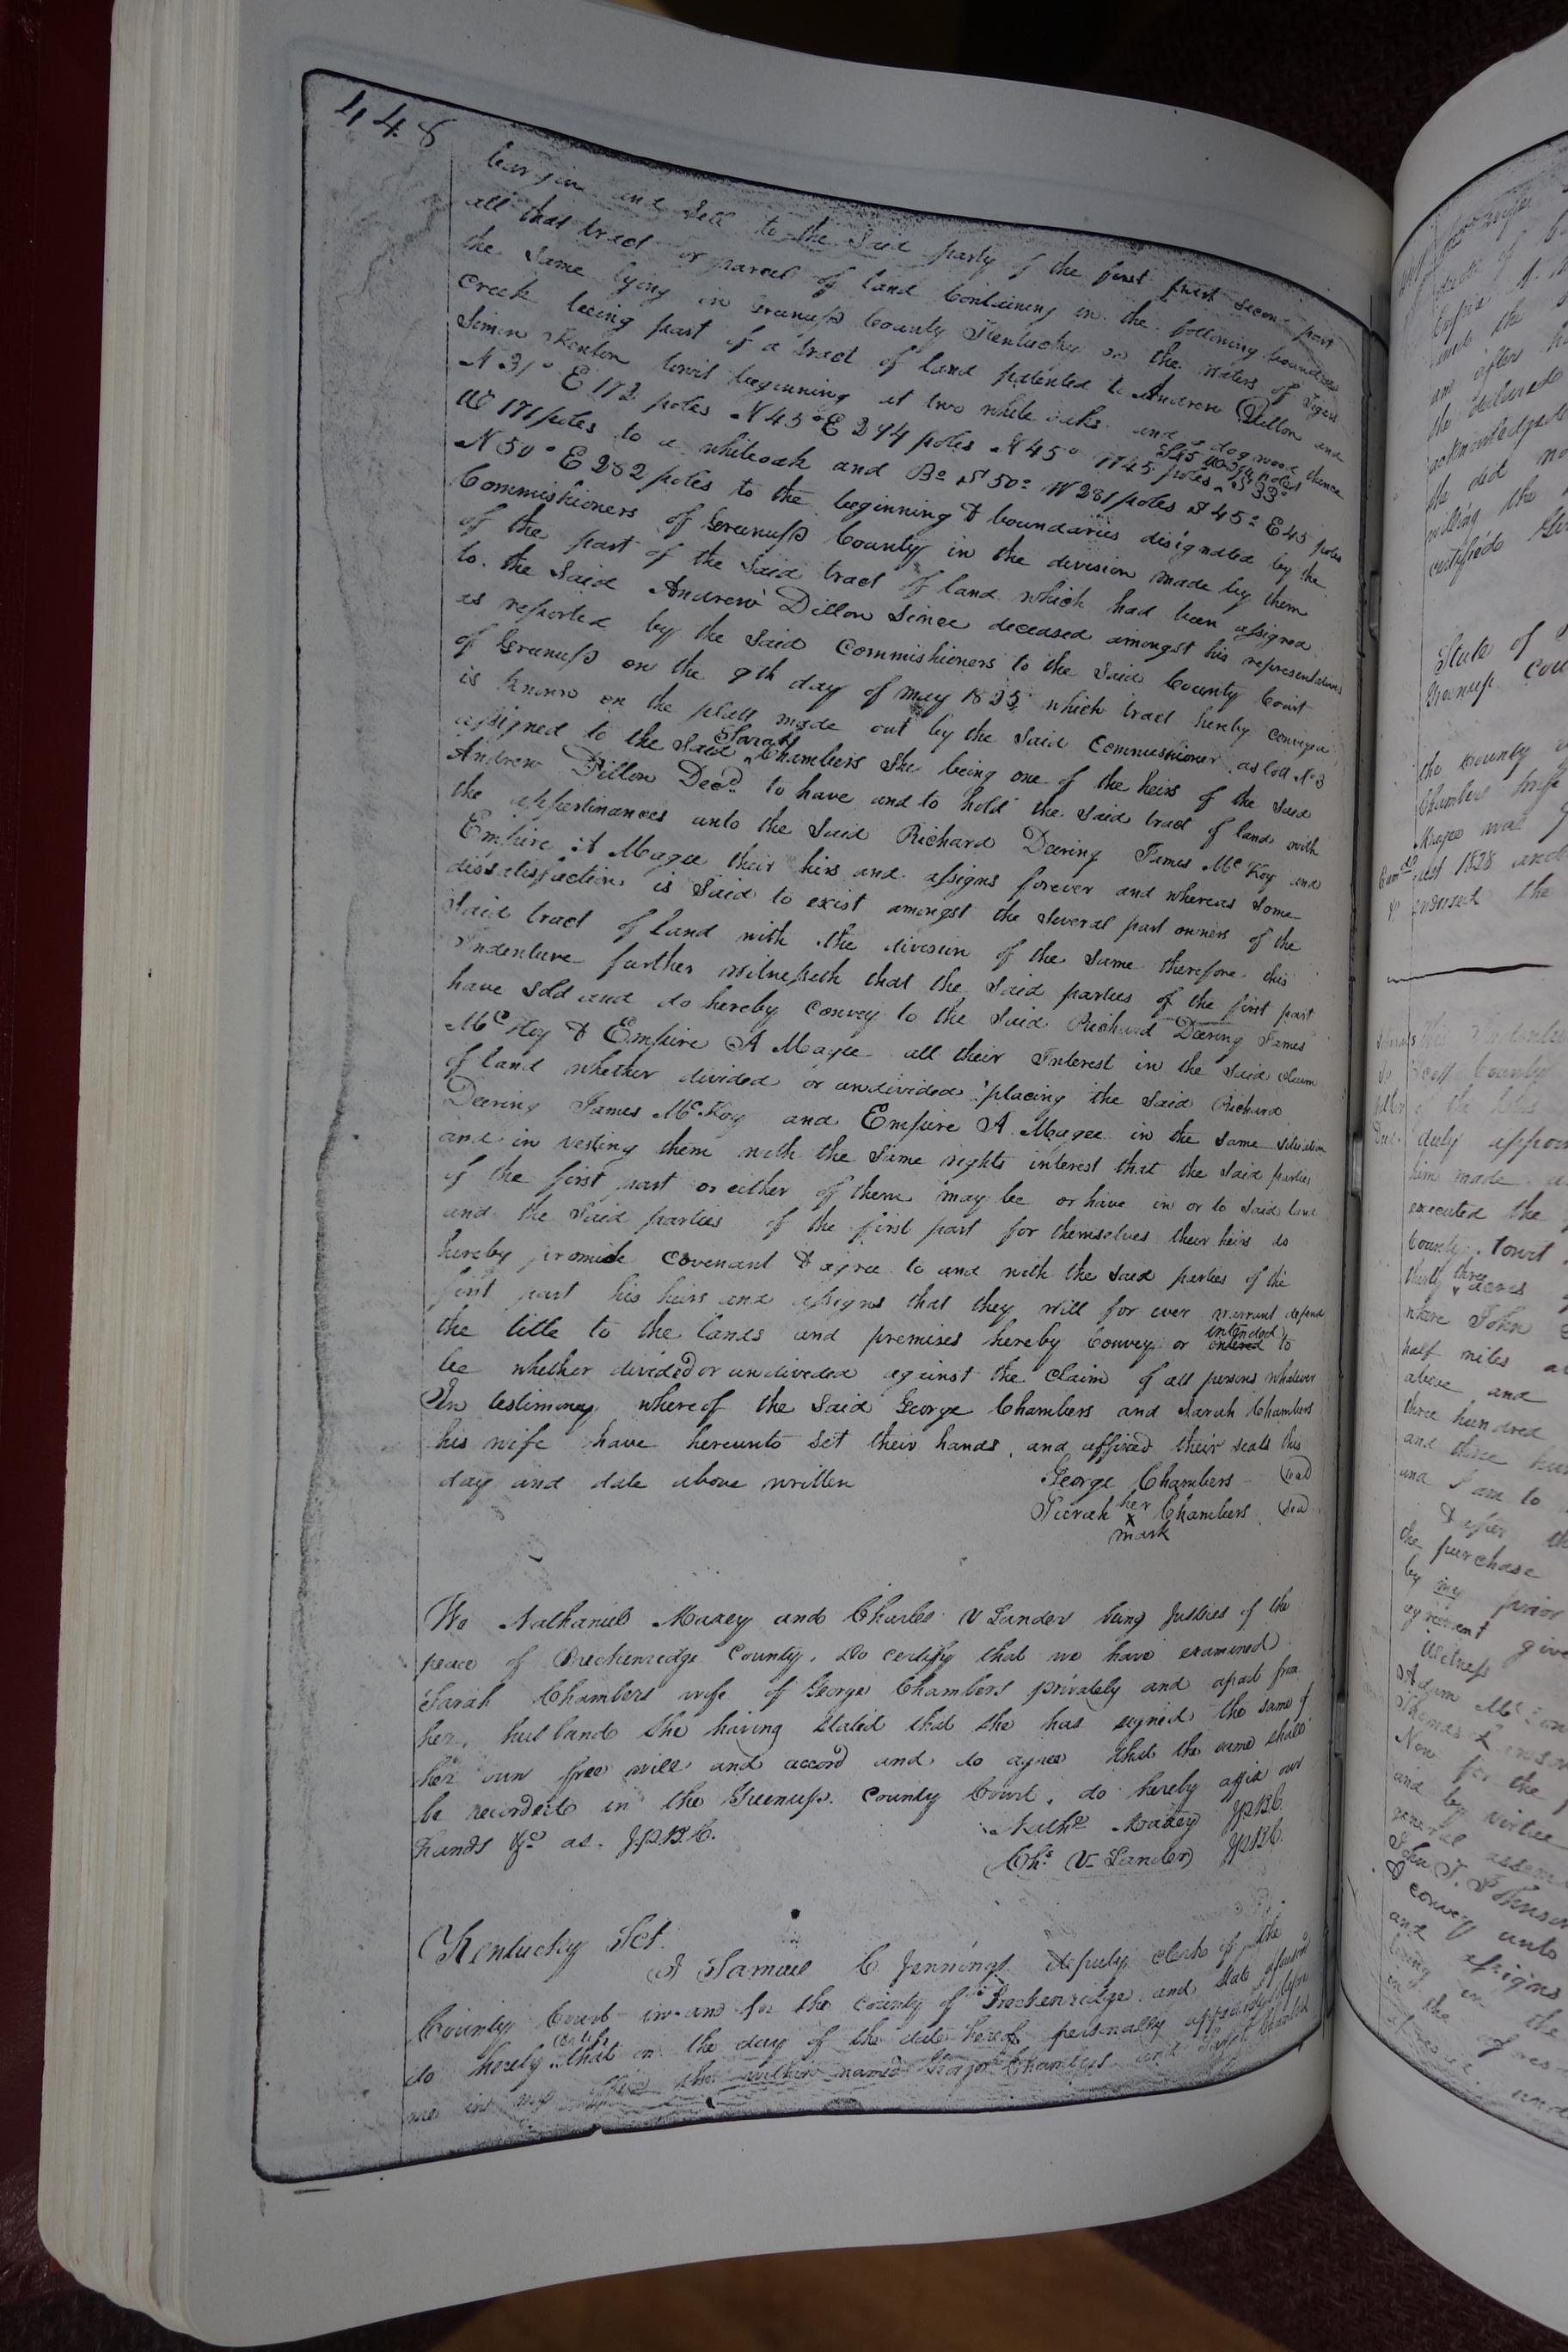 448
bargain and sell to the Said party of the first part second part
all that tract or parcel of land Containing in the following boundaries
the Same lying in Greenup County Kentucky on the waters of Tigers
Creek being part of a tract of land patented to Andrew Dillon and
Simon Kenton towit beginning at two white oaks and a dogwood thence
N 31° E 172 poles N 45° E 244 poles N 45° W 45 poles S 33°
W 171 poles to a whiteoak and Bo S 50° W 281 poles S 45° E 45 poles
N 50° E 282 poles to the beginning & boundaries designated by the
Commishioners of Greenup County in the division made by them
of the part of the Said tract of land which had been assigned
to the Said Andrew Dillon Since deceased amongst his representatives
as reported by the Said Commishioners to the Said County Court
of Greenup on the 9th day of may 1825 which tract hereby conveyed
is known on the platt made out by the Said Commissioner as lott No 3
assigned to the Said Sarah Chambers She being one of the heirs of the Said
Andrew Dillon Decd. to have and to hold the Said tract of land with
the appertinances unto the Said Richard Deering James McKoy and
Empire A Magee their heirs and assigns forever and whereas Some
dissatisfaction is Said to exist amongst the Several part owners of the
Said tract of land with the division of the Same therefore this
Indenture further witnesseth that the Said parties of the first part
have Sold and do hereby Convey to the Said Richard Deering James
McKoy & Empire A Magee all their Interest in the Said claim
of land whether divided or undivided placing the Said Richard
Deering James McKoy and Empire A. Magee in the Same situation
and in vesting them with the Same rights interest that the Said parties
of the first part or either of them may be or have in or to Said land
and the Said parties of the first part for themselves their heirs do
hereby promise Covenant & agree to and with the Said parties of the
first part his heirs and assigns that they will for ever warrant defend
the title to the lands and premises hereby Convey or intended to
be whether divided or undivided against the Claim of all persons whatever
In testimony whereof the Said George Chambers and Sarah Chambers
his wife have hereunto Set their hands and affixed their seals this
day and date above written George Chambers (seal)
Sarah her x mark Chambers (seal)
We Nathaniel Maxey and Charles V Lander being Justies of the
peace of Breckenredge County, Do certify that we have examined
Sarah Chambers wife of George Chambers privately and apart from
her husband She having stated that she has signed the same of
her own free will and accord and do agree that the same shall
be recorded in the Greenup County Court, do hereby affix our
hands &c as. J.P.B.C. Nathl Maxey JPBC
Chs V Lander JPBC
Kentucky Sct.
I Samuel C. Jennings deputy clerk of the
County Court in and for the County of Breckenridge and State aforesaid
do hereby certify that on the day of the date hereof personally appeared before
me in my office the within named George Chambers and
State of
Greenup Cou
the County
Chambers
Magee was
1828 and
endorsed the
County
duly appoin
him made
executed the
County. towit
thirty three acres
where John
half miles
above and
three hundred
and three hun
and I am to
the purchase
by my prior
agreement give
Witness
Now for the
and by virtue
general assem
John T. Johnson
& convey unto
and assigns
in the afores